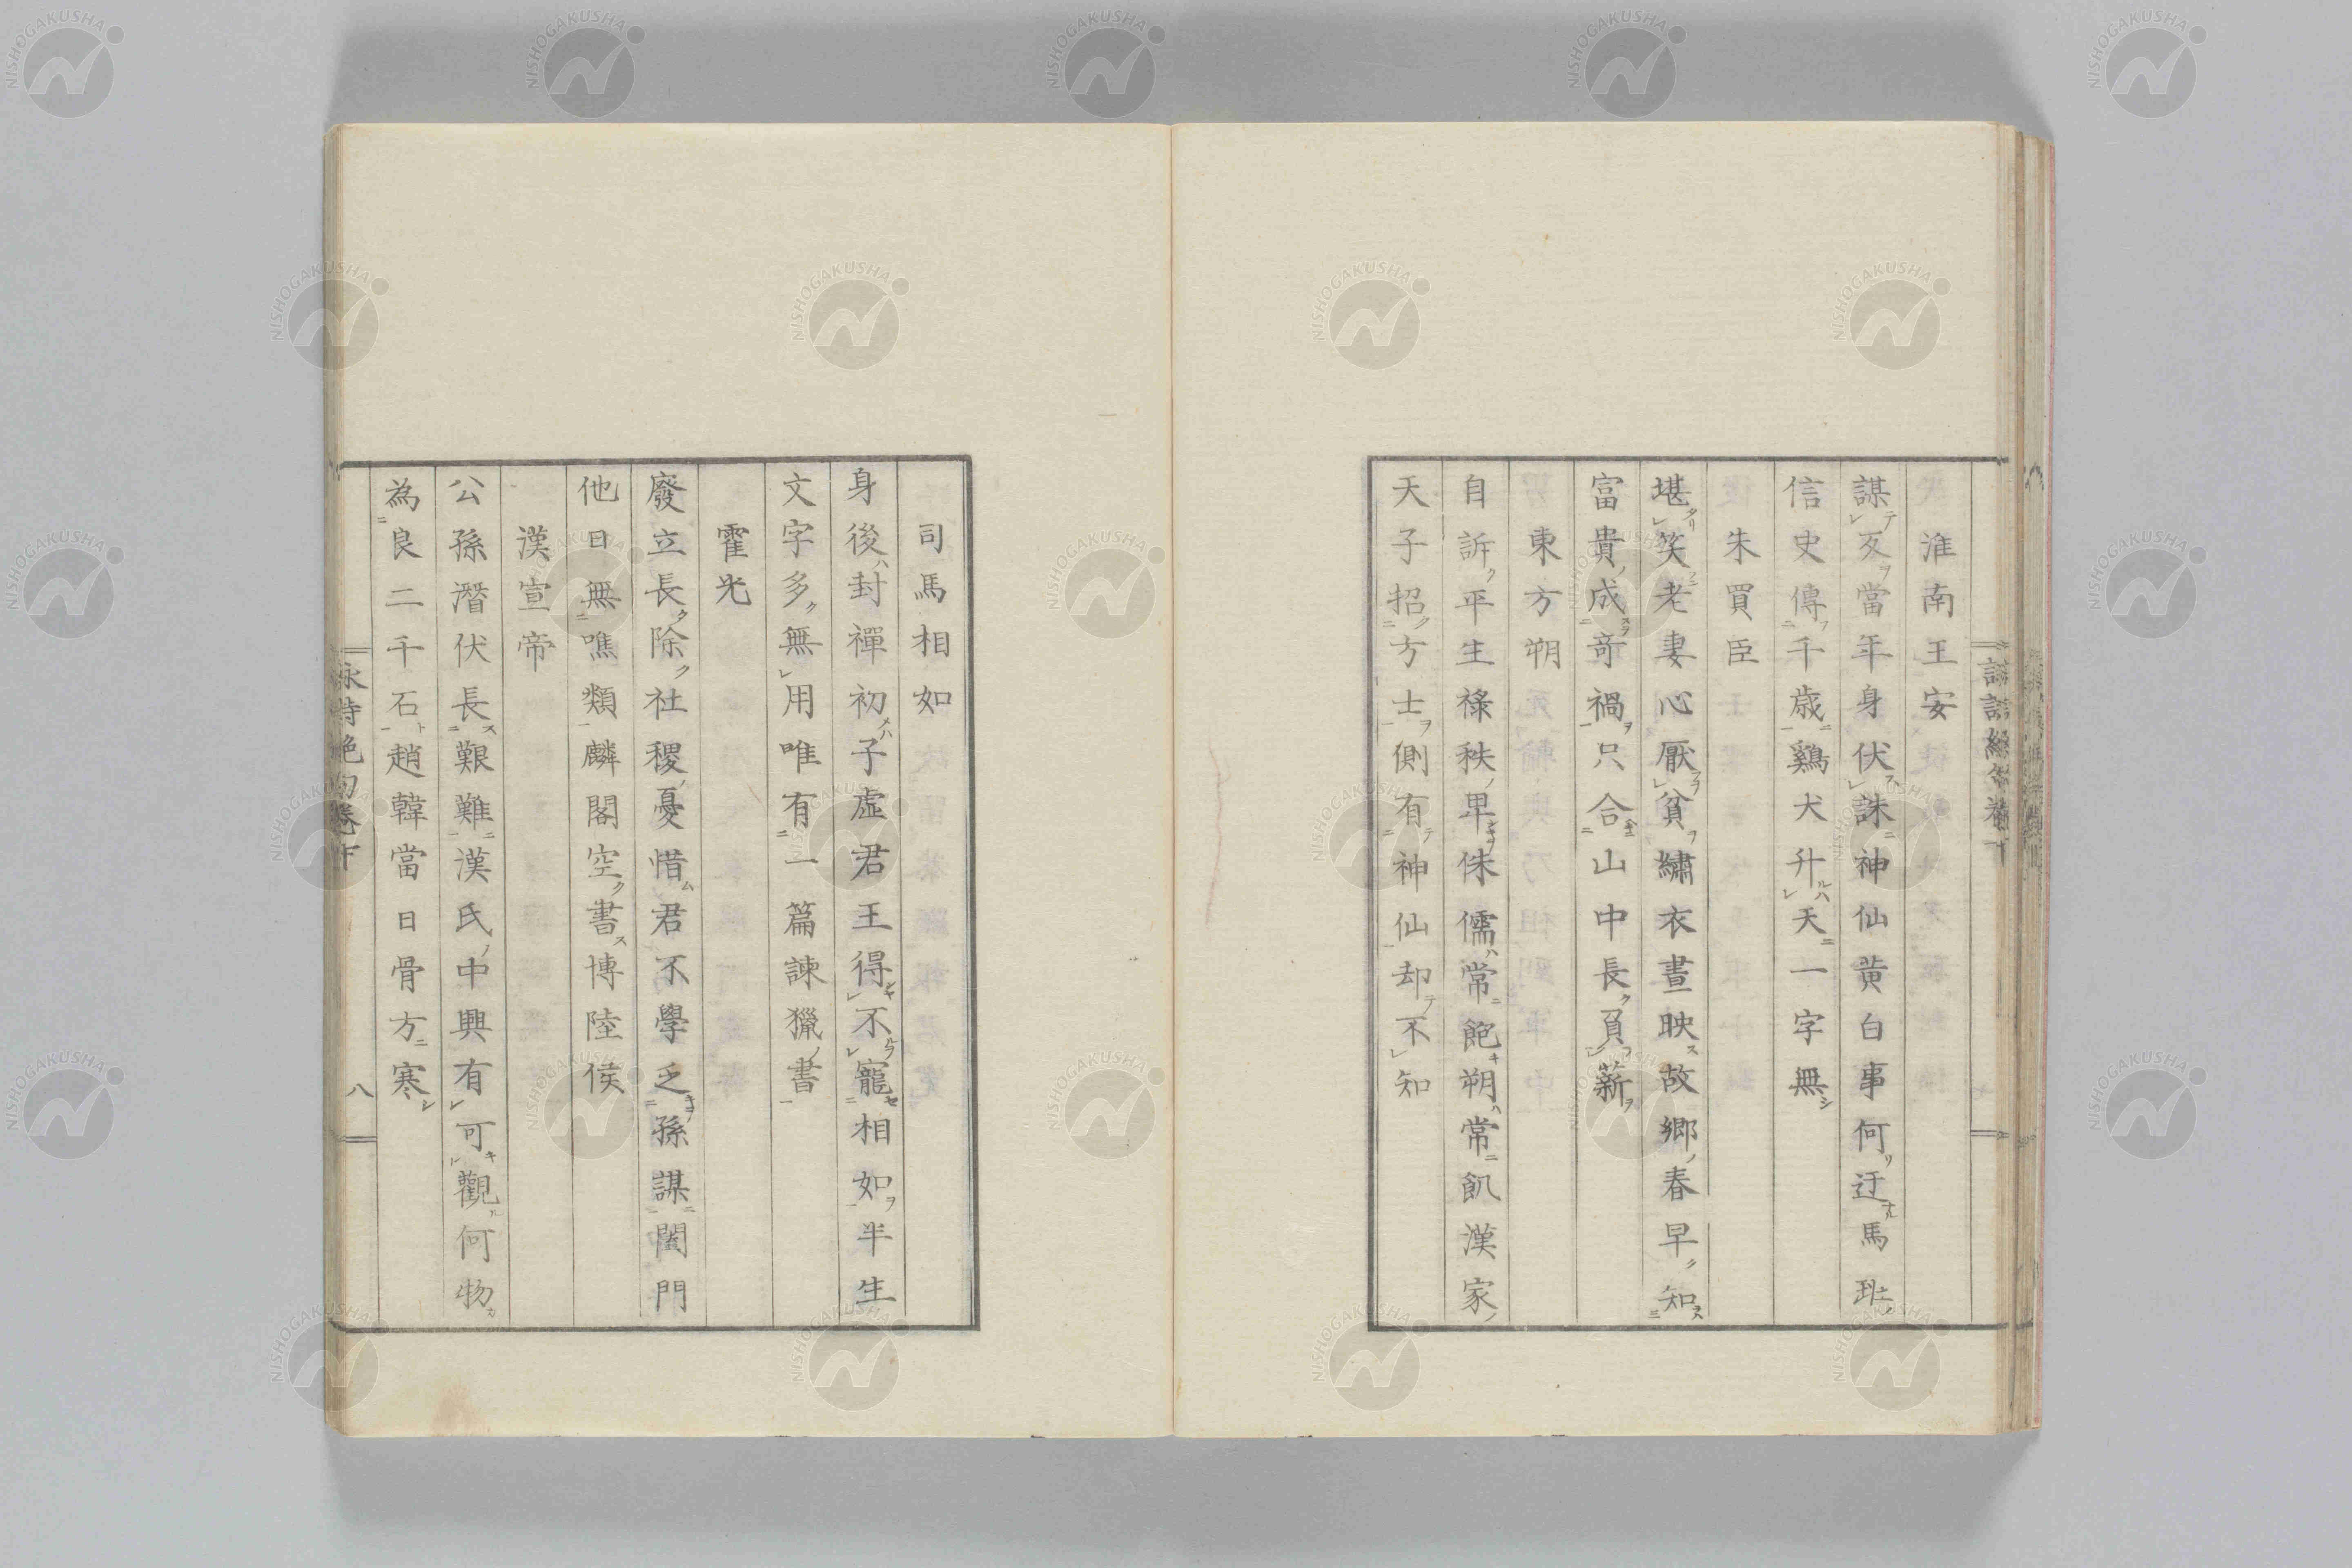 淮南王安
謀反當年身伏誅神仙黄白事何迂馬班
信史傳千歳鷄犬升天一字無
朱買臣
堪笑老妻心厭貧繡衣晝映故郷春早知
富貴成奇禍只合山中長負薪
東方朔
自訴平生祿秩卑侏儒常飽朔常飢漢家
天子招方士側有神仙却不知
司馬相如
身後封禪初子虛君王得不寵相如半生
文字多無用唯有一篇諫獵書
霍光
廢立長除社稷憂惜君不學乏孫謀閨門
他日無噍類麟閣空書博陸侯
漢宣帝
公孫潛伏長艱難漢氏中興有可觀何物
為良二千石趙韓當日骨方寒
詠詩絶句卷下
八
NISHOGAKUSHA